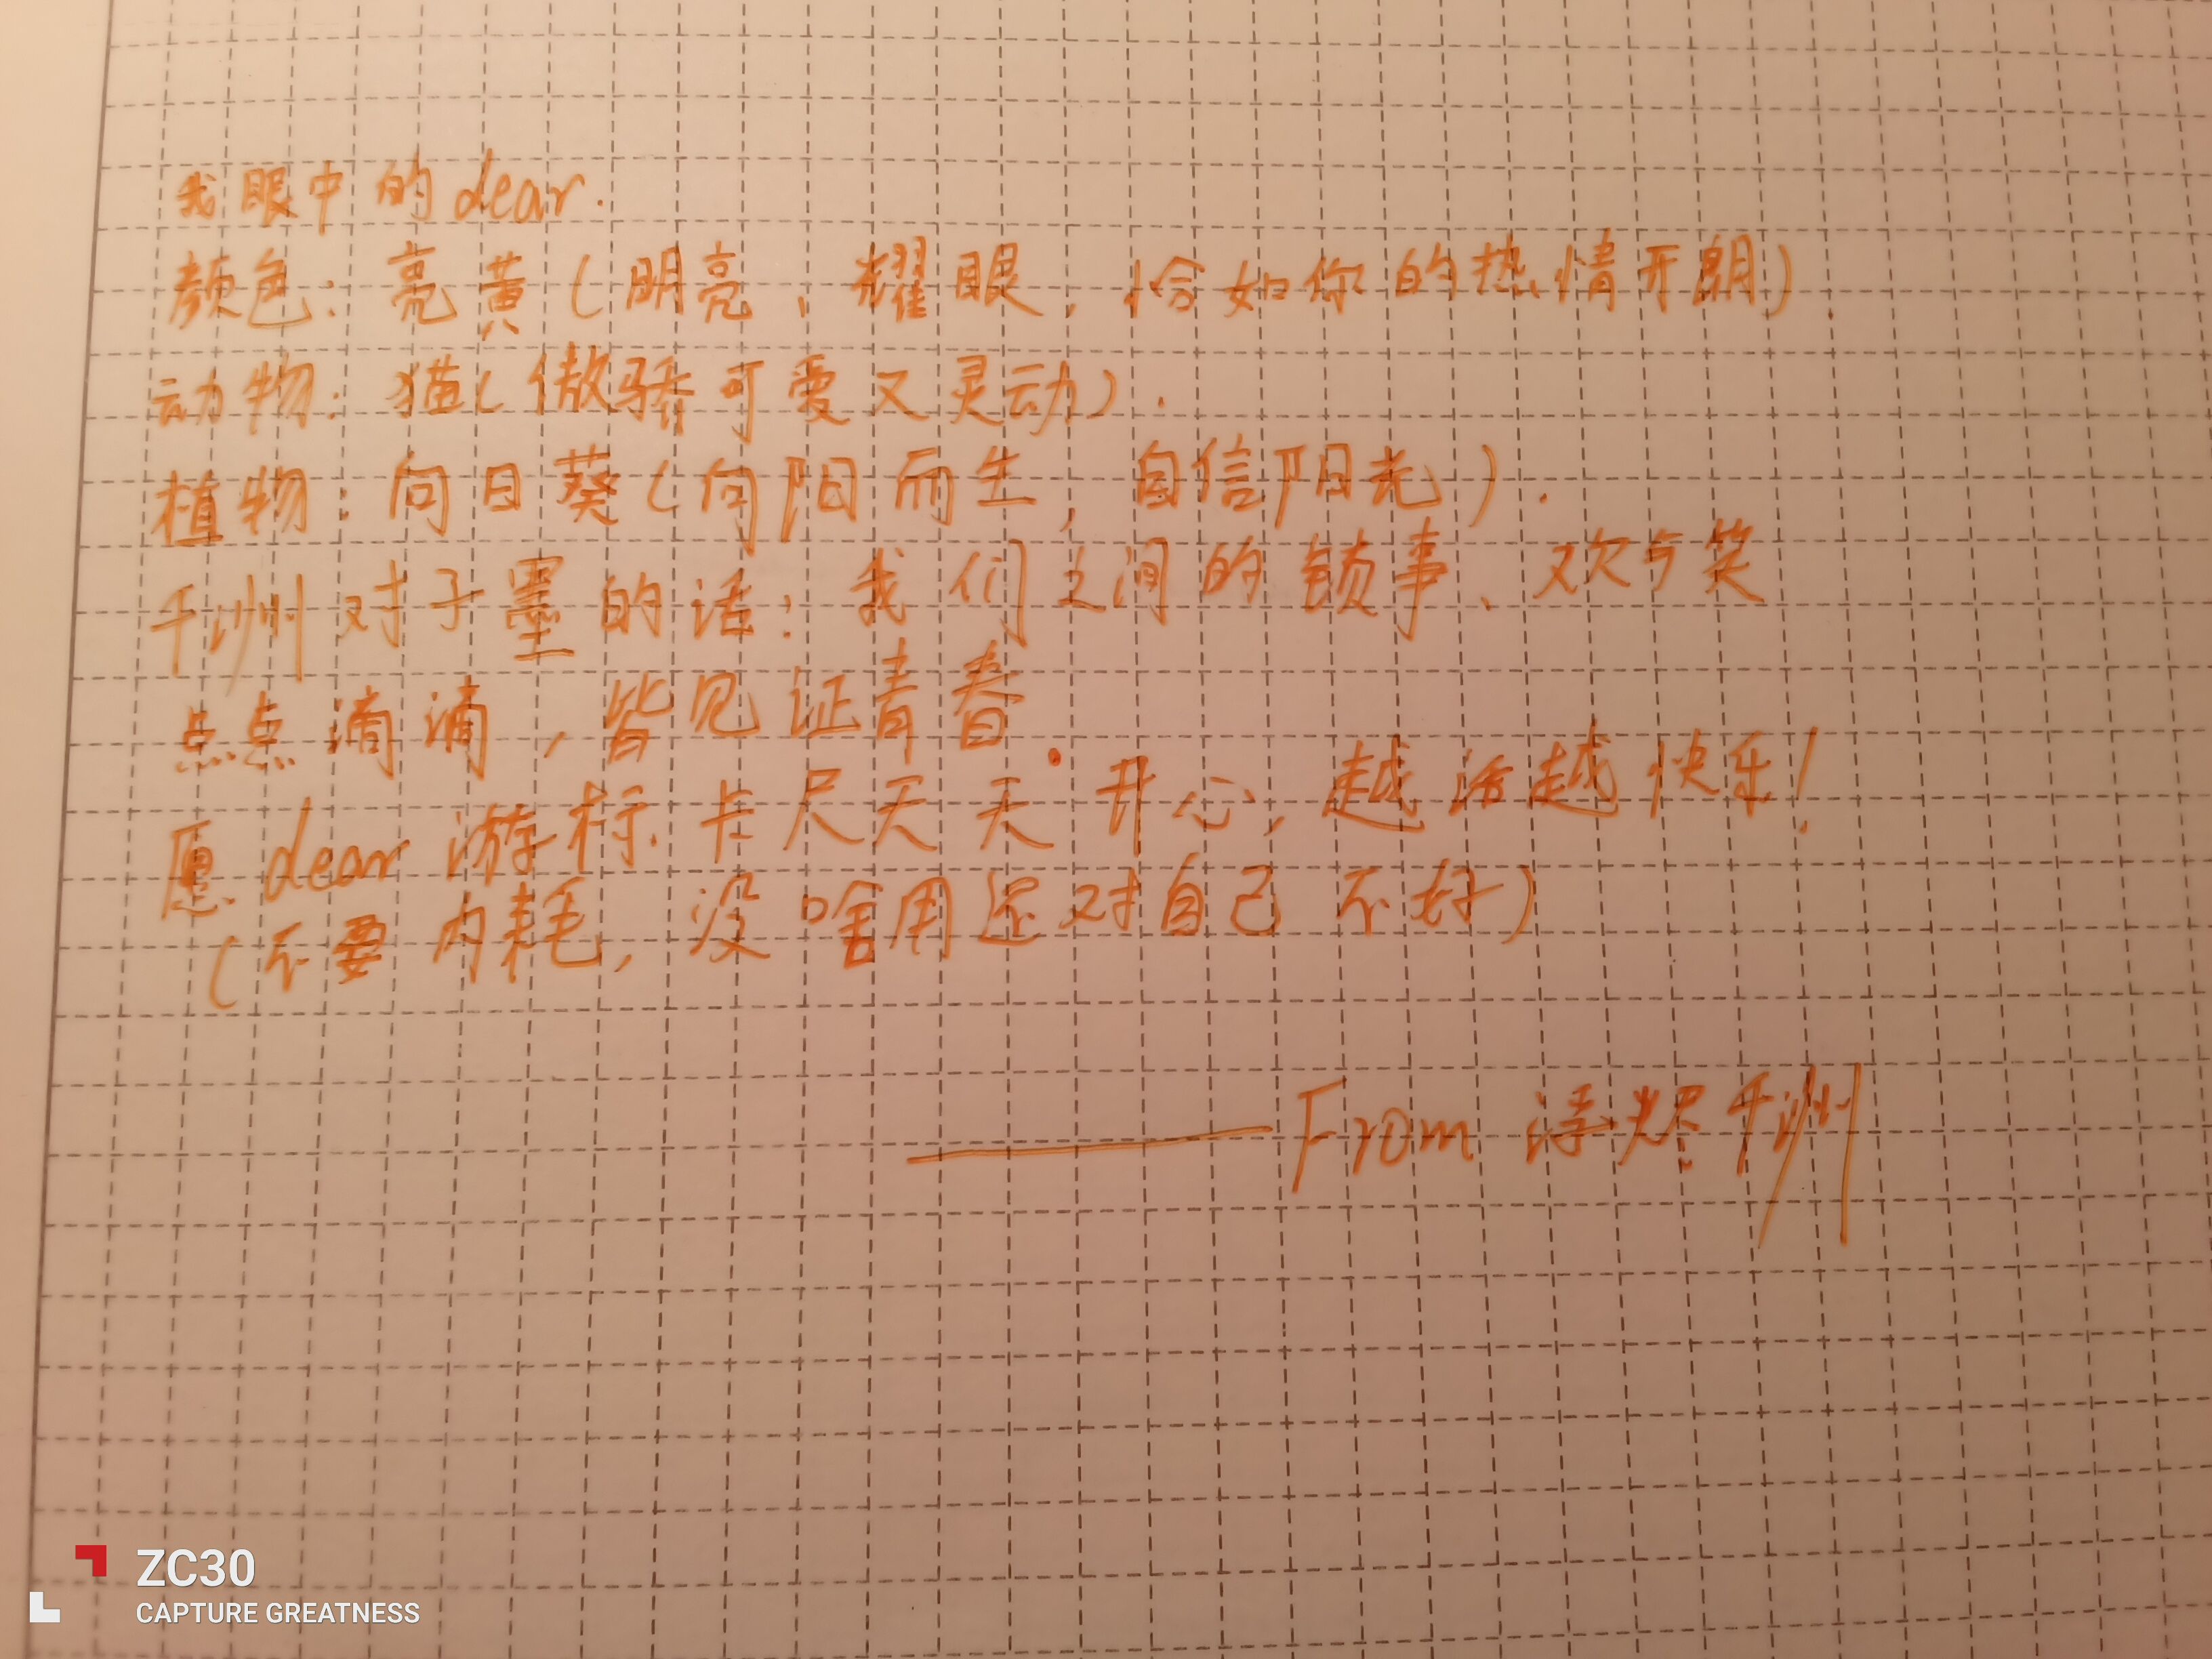 我眼中的dear.
颜色：亮黄（明亮、耀眼，恰如你的热情开朗）.
动物：猫（傲骄可爱又灵动）.
植物：向日葵（向阳而生，自信阳光）.
千洲对子墨的话：我们之间的锁事、欢与笑
点点滴滴，皆见证青春.
愿dear游标卡尺天天开心，越活越快乐！
（不要内耗，没啥用还对自己不好）
——From 浮光尽千洲
ZC30
CAPTURE GREATNESS